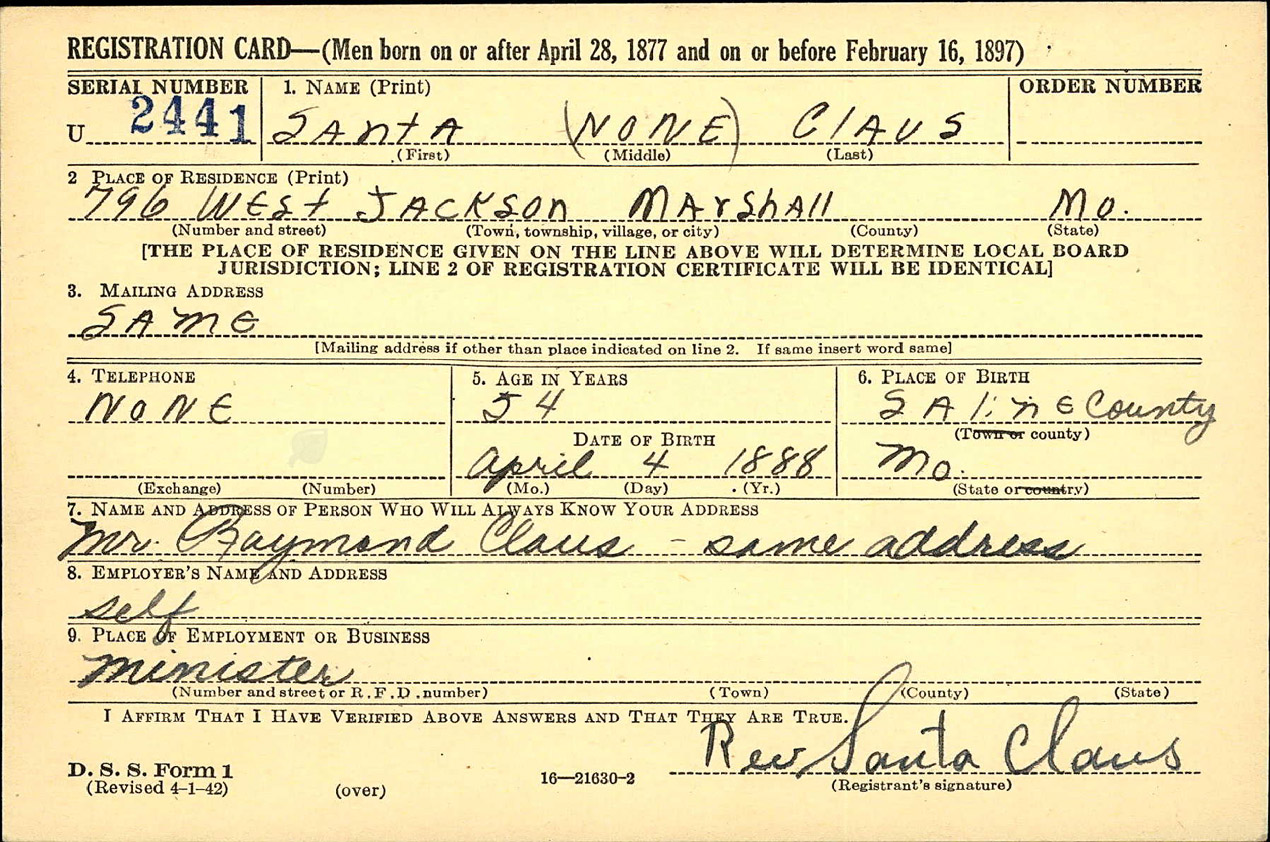 REGISTRATION CARD—(Men born on or after April 28, 1877 and on or before February 16, 1897)
SERIAL NUMBER 1. NAME (Print) ORDER NUMBER
U 2441 SANTA (NONE) CLAUS
(First) (Middle) (Last)
2 PLACE OF RESIDENCE (Print)
796 WEST JACKSON MArShAll Mo.
(Number and street) (Town, township, village, or city) (County) (State)
[THE PLACE OF RESIDENCE GIVEN ON THE LINE ABOVE WILL DETERMINE LOCAL BOARD
JURISDICTION; LINE 2 OF REGISTRATION CERTIFICATE WILL BE IDENTICAL]
3. MAILING ADDRESS
SAME
[Mailing address if other than place indicated on line 2. If same insert word same]
4. TELEPHONE 5. AGE IN YEARS 6. PLACE OF BIRTH
NONE 54 SALINE County
DATE OF BIRTH (Town or county)
April 4 1888 Mo.
(Exchange) (Number) (Mo.) (Day) (Yr.) (State or country)
7. NAME AND ADDRESS OF PERSON WHO WILL ALWAYS KNOW YOUR ADDRESS
Mr. Raymond Claus – same address
8. EMPLOYER'S NAME AND ADDRESS
self
9. PLACE OF EMPLOYMENT OR BUSINESS
Minister
(Number and street or R. F. D. number) (Town) (County) (State)
I AFFIRM THAT I HAVE VERIFIED ABOVE ANSWERS AND THAT THEY ARE TRUE.
Rev Santa Claus
D. S. S. Form 1
(Revised 4-1-42) (over) 16—21630-2 (Registrant's signature)